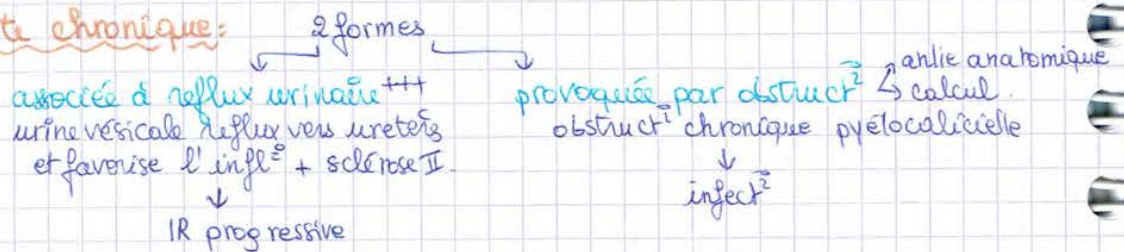 te chronique: 2 formes
associée à reflux urinaire +++
urine vésicale reflux vers ureters
et favorise l'infl° + sclérose II.
IR progressive
provoquée par obstruct° anlie anatomique
calcul.
obstruct° chronique pyélocalicielle
infect°